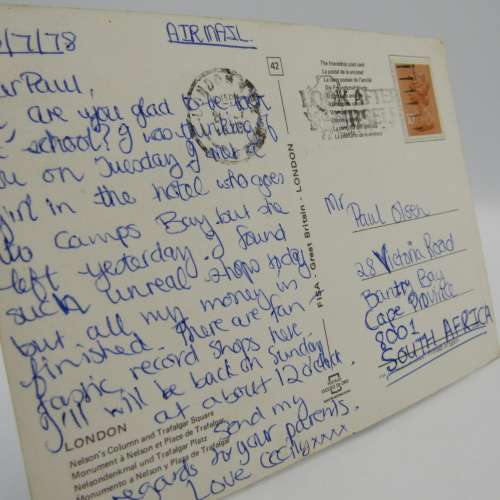 /7/78
AIRMAIL.
Paul,
are you glad to be
school? I was thinking of
on Tuesday. I met a
girl in the hotel who goes
to Camps Bay but she
left yesterday. I found
such unreal shops today.
but all my money in
finished. There are fan-
tastic record shops here.
I'll will be back on Sunday
at about 12 o'clock.
Send my
regards to your parents.
Love Cecily xxx
LONDON
Nelson's Column and Trafalgar Square
Monument à Nelson et Place de Trafalgar
Nelsondenkmal und Trafalgar Platz
Monumento a Nelson y Plaza de Trafalgar
42
FISA - Great Britain - LONDON
The friendship post card
La postal de la amistad
La carte postale de l'amitié
LONDON
LOOK AFTER
Mr. Paul Olsen
28 Victoria Road
Bantry Bay
Cape Province
8001
SOUTH AFRICA